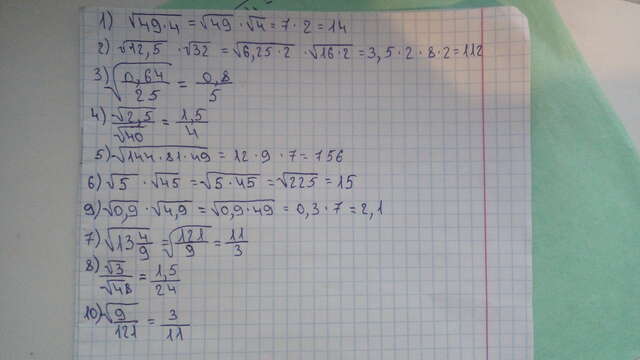 1) √49·4 = √49 · √4 = 7 · 2 = 14
2) √12,5 · √32 = √6,25·2 · √16·2 = 3,5·2·8·2 = 112
3) √0,64/25 = 0,8/5
4) √2,5/√40 = 1,5/4
5) √144·81·49 = 12 · 9 · 7 = 756
6) √5 · √45 = √5·45 = √225 = 15
9) √0,9 · √4,9 = √0,9·49 = 0,3 · 7 = 2,1
7) √13 4/9 = √121/9 = 11/3
8) √3/√48 = 1,5/24
10) √9/121 = 3/11